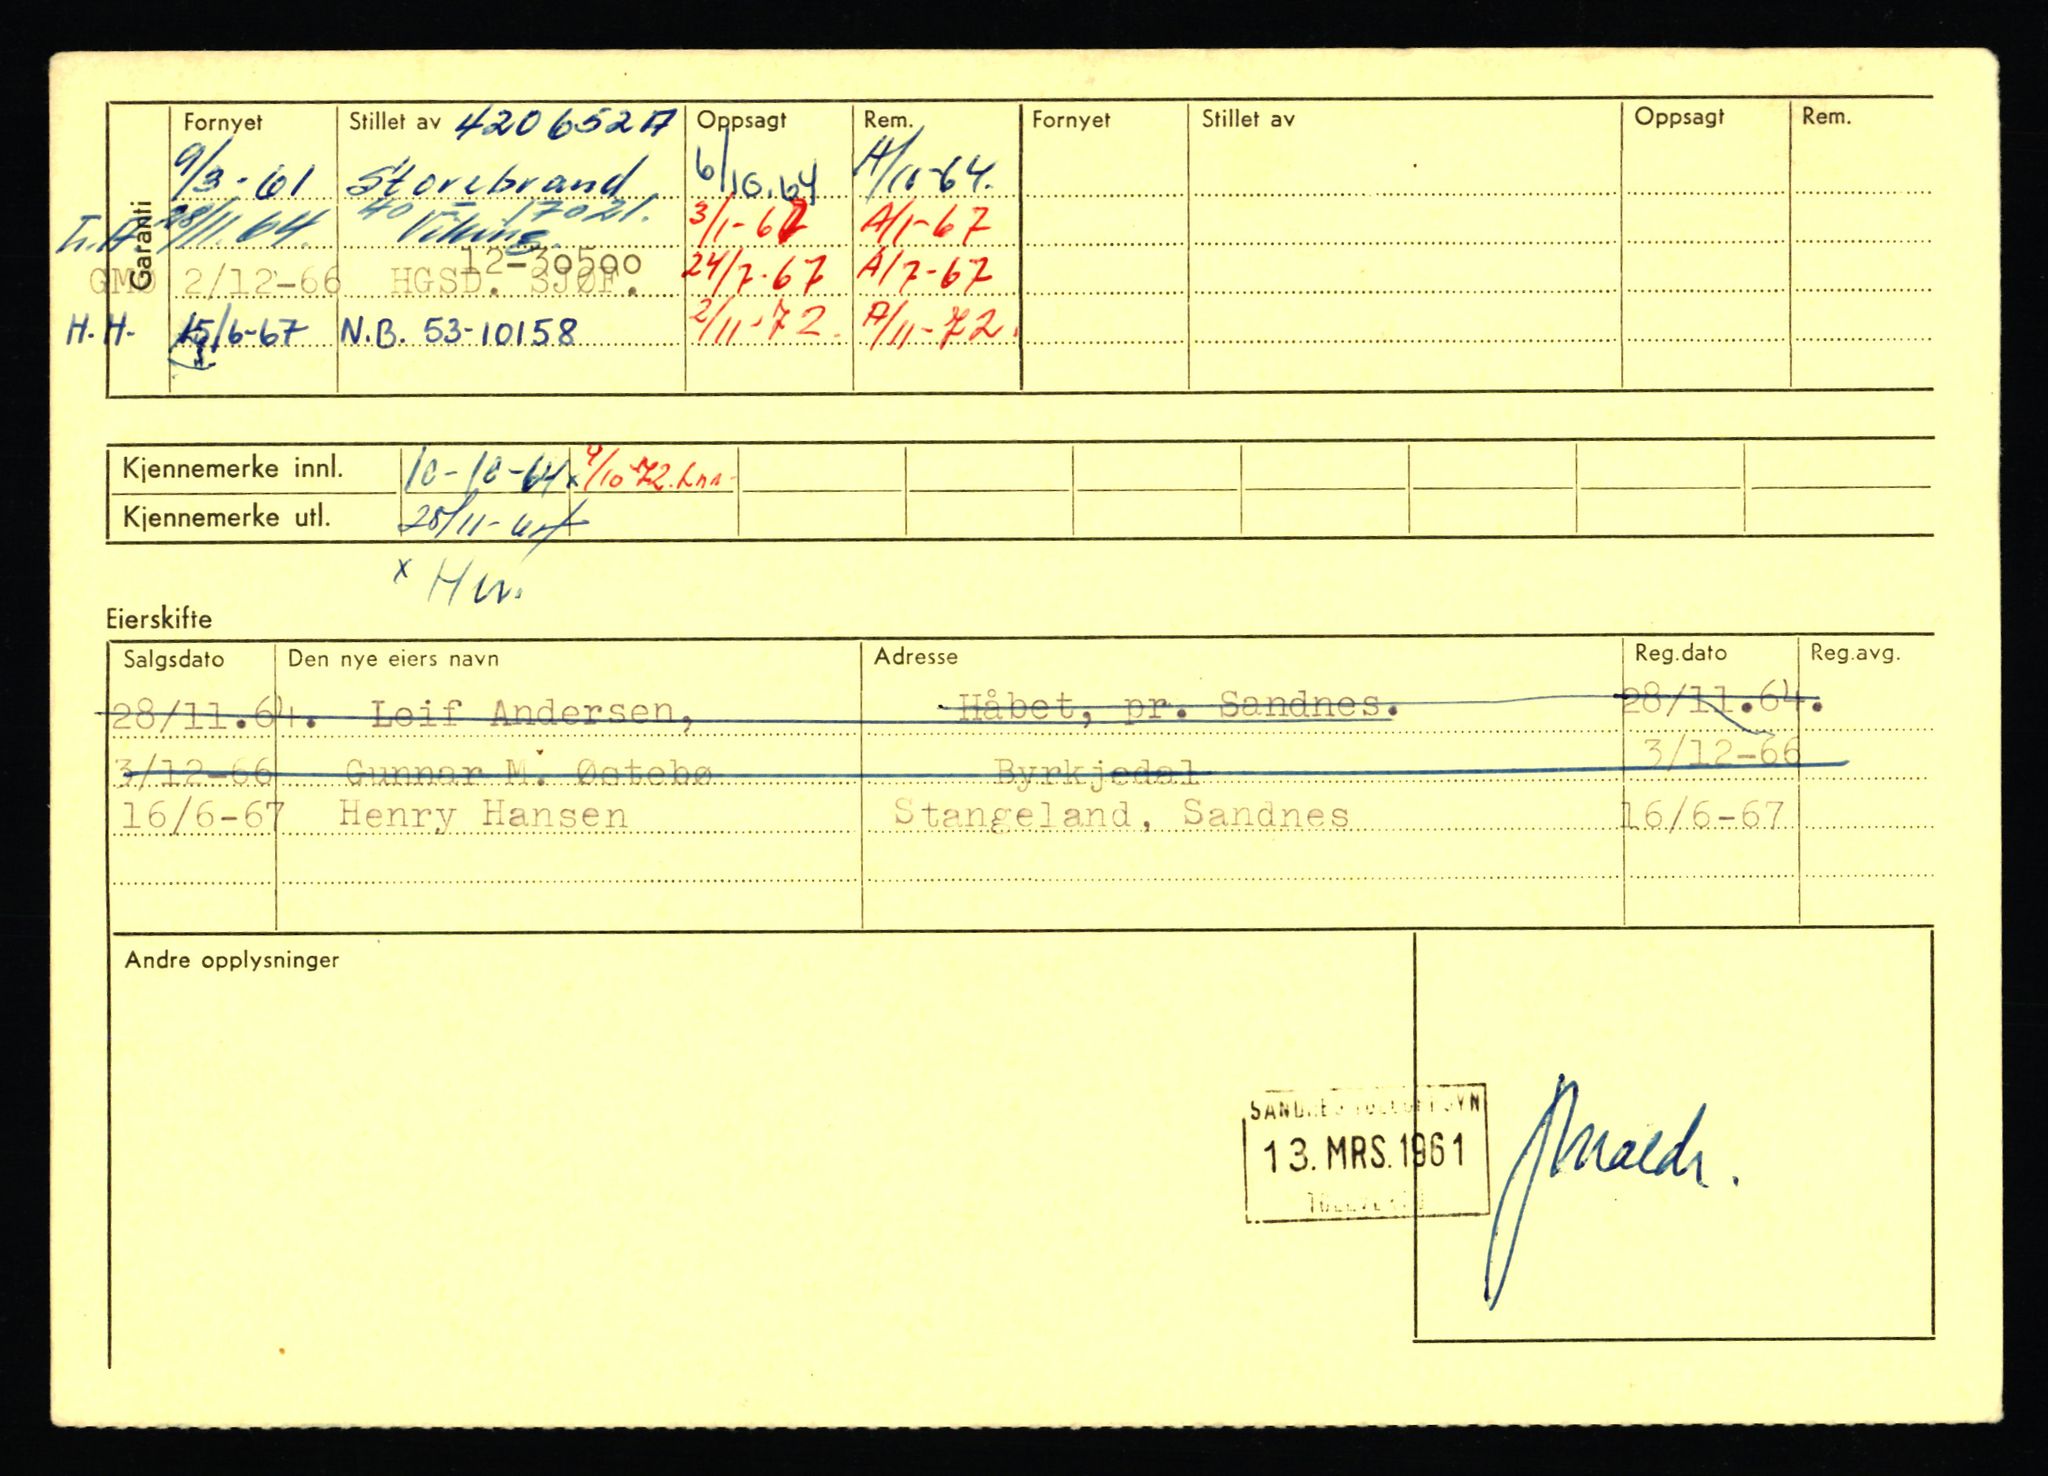 Garanti
Fornyet Stillet av 4206527A Oppsagt Rem. Fornyet Stillet av Oppsagt Rem.
9/3-61 Storebrand 6/10.64 A/10-64.
L.A 28/11.64. 40 - 17021. Viking 3/1-67 A/1-67
12-30500
GMØ 2/12-66 HGSD. SJØF. 24/7-67 A/7-67
H.H. 15/6-67 N.B. 53-10158 2/11-72. A/11-72.
Kjennemerke innl. 10-10-64x 4/10-72.
Kjennemerke utl. 28/11-64
x
Eierskifte
Salgsdato Den nye eiers navn Adresse Reg.dato Reg.avg.
28/11.64. Leif Andersen, Håbet, pr. Sandnes. 28/11.64.
3/12-66 Gunnar M. Østebø Byrkjedal 3/12-66
16/6-67 Henry Hansen Stangeland, Sandnes 16/6-67
Andre opplysninger
13. MRS. 1961